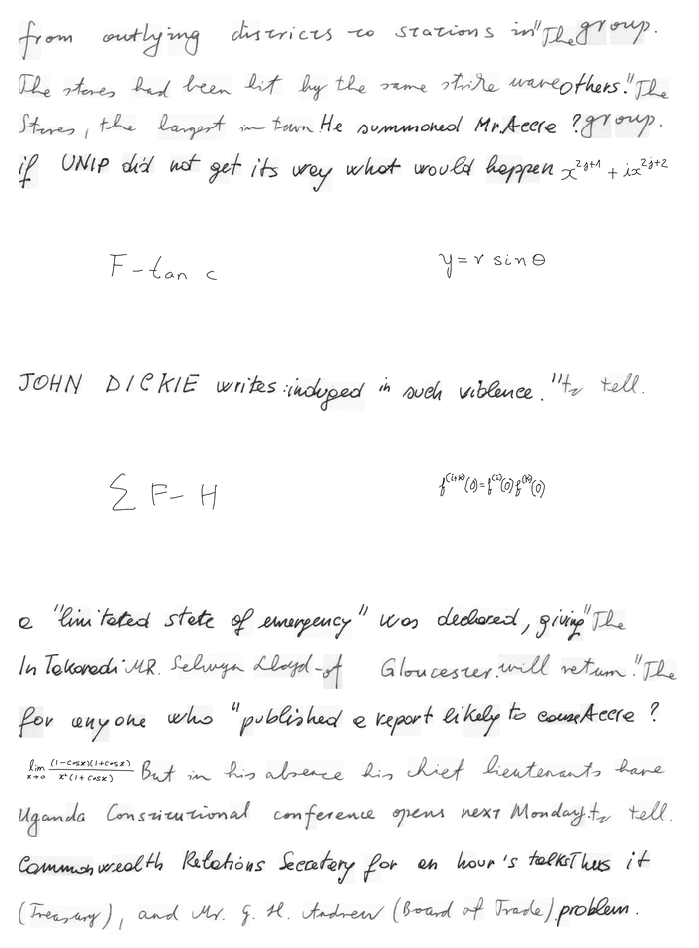 from outlying districts to stations in "The group.
The stores had been hit by the same strike wave others." The
Stores, the largest in town He summoned Mr. Accre ? group.
if UNIP did not get its way what would happen x^{2j+1} + ix^{2j+2}
F - tan c y = r sin θ
JOHN DICKIE writes : induged in such viblence. " to tell.
∑ F - H f^{(i+k)}(0) = f^{(i)}(0) f^{(k)}(0)
a "limitated state of emergency" was declared, giving "The
In Takoradi MR. Selwyn Lloyd - of Gloucester. will return." The
for anyone who "published a report likely to cause Accre ?
lim_{x→0} \frac{(1-cosx)(1+cosx)}{x²(1+cosx)} But in his absence his chief lieutenants have
Uganda Constitutional conference opens next Monday. to tell.
Commonwealth Relations Secretary for an hour's talks Thus it
(Treasury), and Mr. G. H. Andrew (Board of Trade). problem.